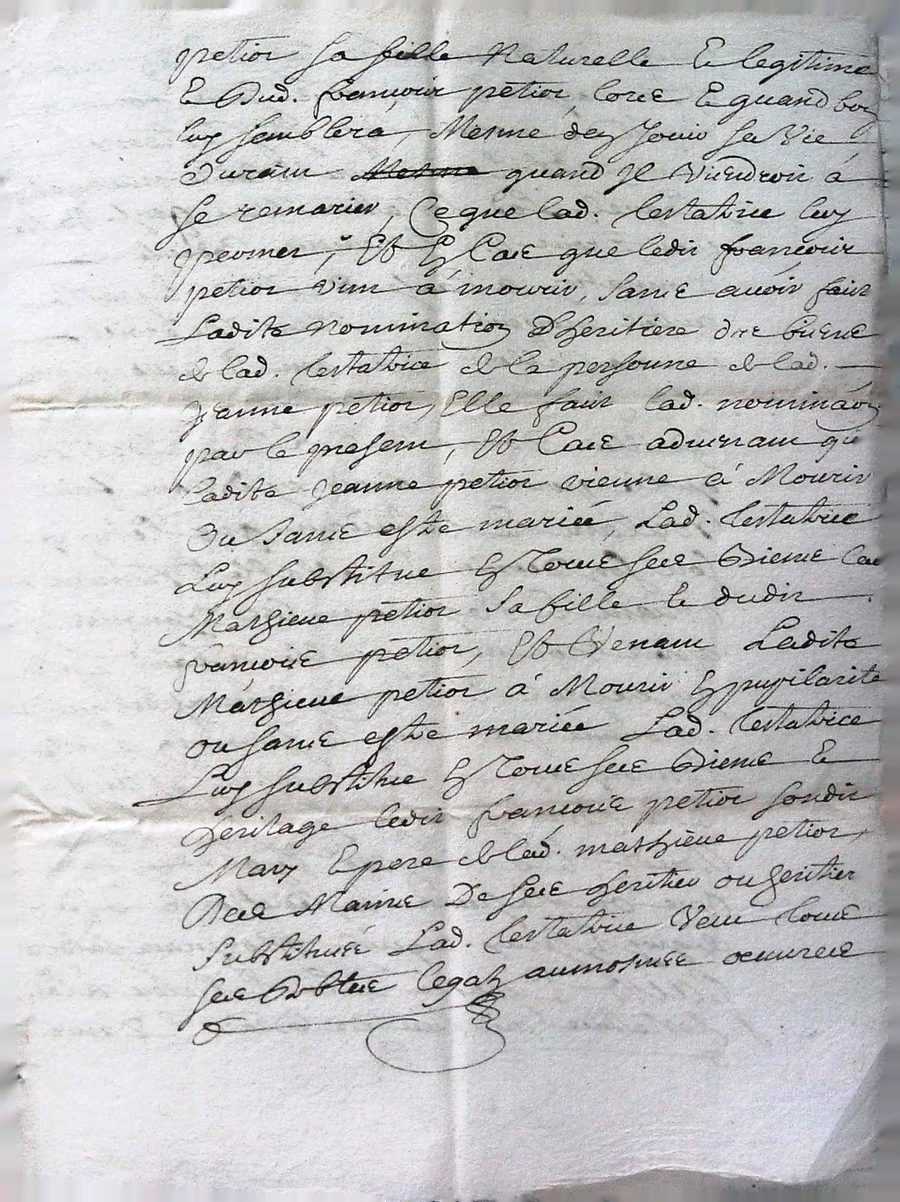 petiot sa fille Naturelle & legitime
& Dud. françois petiot, lors & quand bon
luy semblera, Mesme den Jouir sa Vie
Durant Mesme quand Il Viendroit à
se remarier, Ce que lad. testatrice luy
permet, Et En Cas que ledit françois
petiot vint à mourir, sans avoir fait
Ladite nomination d'heritiere des biens
de lad. testatrice de la personne de lad.
Jeanne petiot, Elle fait lad. nominaon
par le present, Et Cas advenant que
ladite Jeanne petiot vienne à Mourir
Ou sans estre mariée, Lad. testatrice
Luy substitue En Tous ses Biens
Matheive petiot sa fille & dudit
françois petiot, Et Venant Ladite
Matheive petiot à Mourir En pupilarité
ou sans estre mariée Lad. testatrice
Luy substitue En Tous ses Biens &
heritage ledit françois petiot sondit
Mary & pere de lad. matheive petiot,
Des Mains De ses heritier ou heritier
substitués Lad. testatrice Veut tous
ses debtes legatz aumosnes œuvres